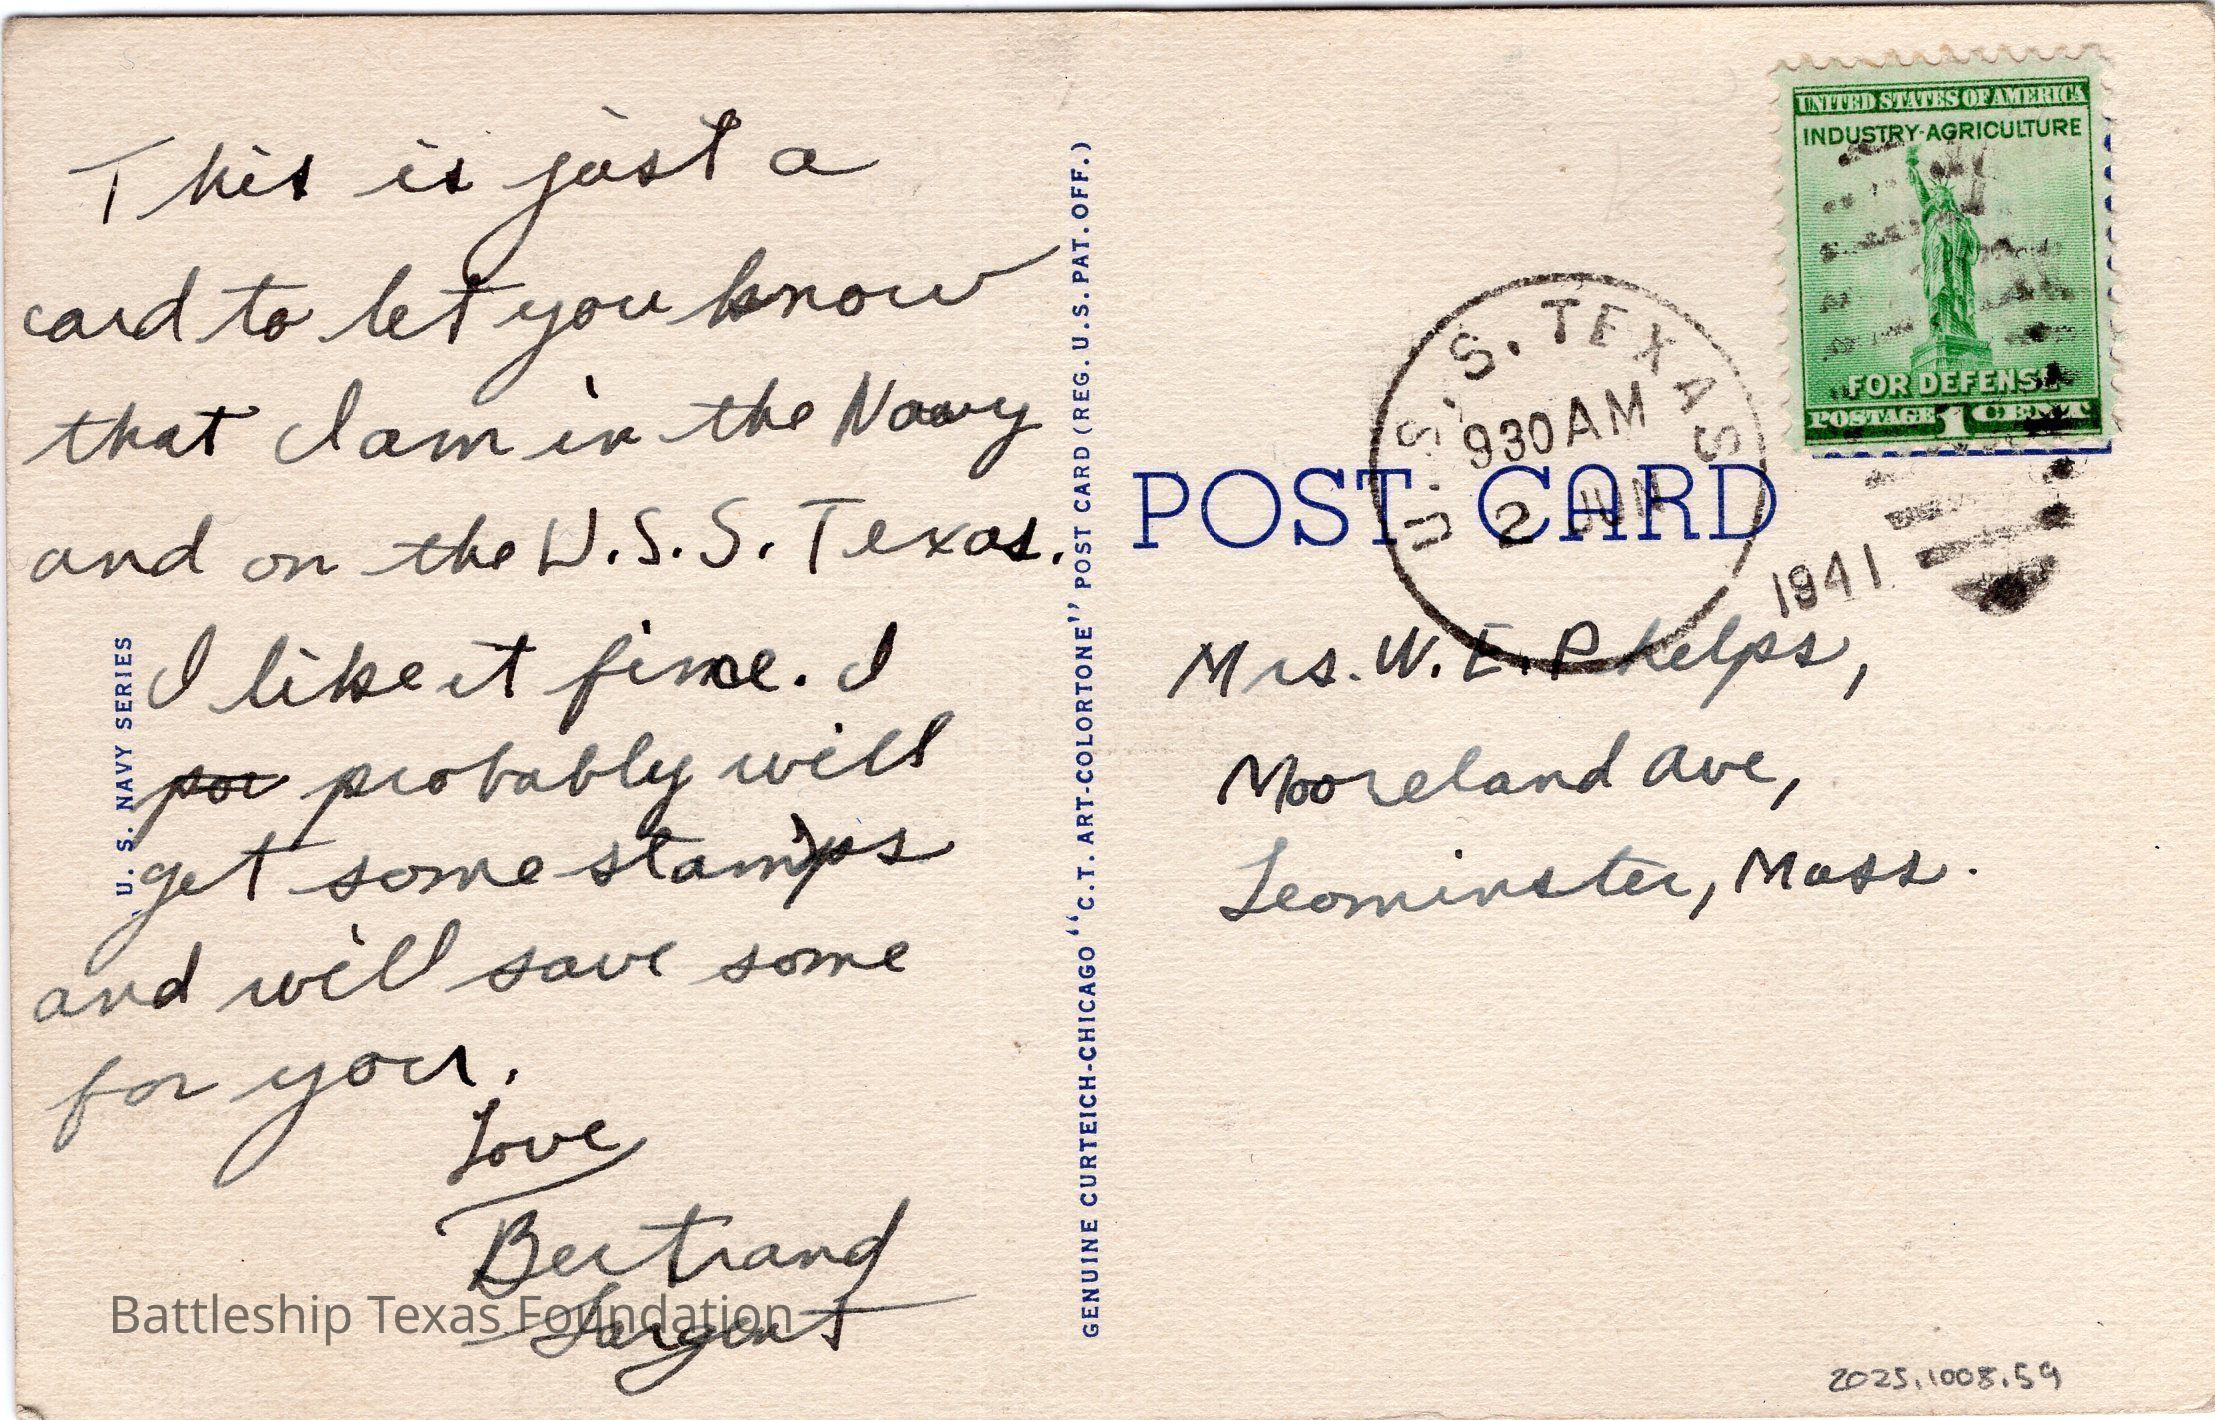 This is just a
card to let you know
that I am in the Navy
and on the U.S.S. Texas.
I like it fine. I
por probably will
get some stamps
and will save some
for you.
Love
Bertrand
Sargent
U. S. NAVY SERIES
GENUINE CURTEICH-CHICAGO "C.T. ART-COLORTONE" POST CARD (REG. U.S. PAT. OFF.)
UNITED STATES OF AMERICA
INDUSTRY-AGRICULTURE
FOR DEFENSE
POSTAGE 1 CENT
U.S.S. TEXAS
930 AM
2 JUN
1941
POST CARD
Mrs. W. E. Phelps,
Mooreland Ave,
Leominster, Mass.
Battleship Texas Foundation
2025.1008.59